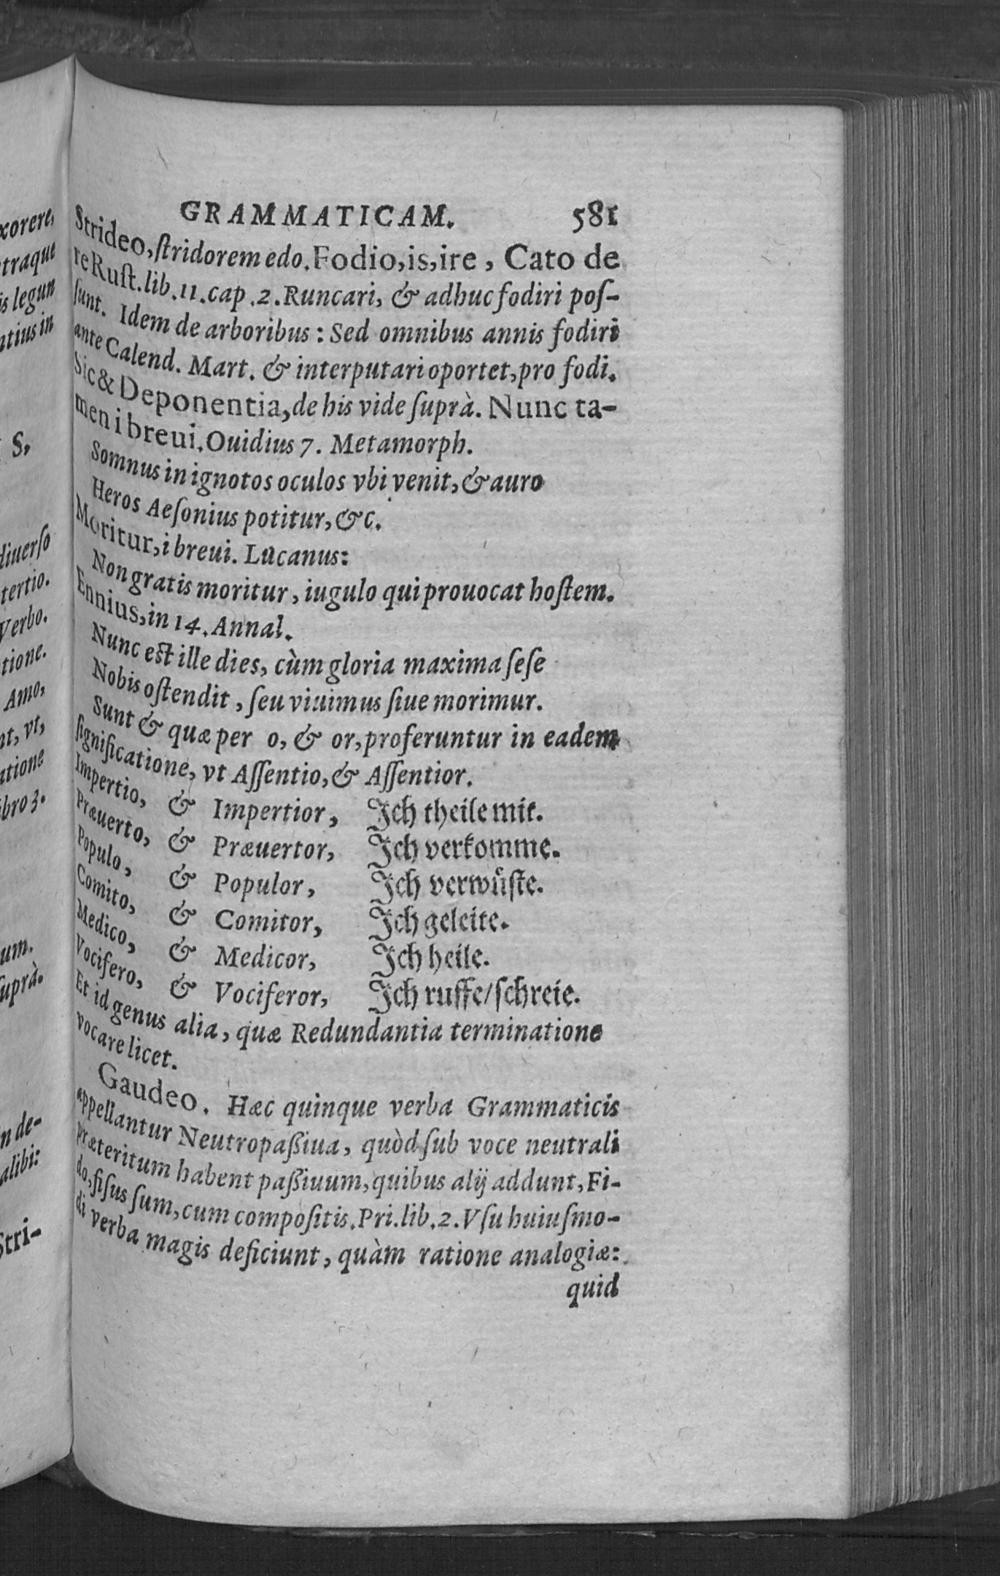 GRAMMATICAM. 581
Strideo, ſtridorem edo. Fodio, is, ire, Cato de
re Ruſt. lib. 11. cap. 2. Runcari, & adhuc fodiri poſ-
ſunt. Idem de arboribus: Sed omnibus annis fodiri
ante Calend. Mart. & interputari oportet, pro fodi.
Sic & Deponentia, de his vide ſuprà. Nunc ta-
men i breui. Ouidius 7. Metamorph.
Somnus in ignotos oculos vbi venit, & auro
Heros Aeſonius potitur, &c.
Moritur, i breui. Lucanus:
Non gratis moritur, iugulo qui prouocat hoſtem.
Ennius, in 14. Annal.
Nunc eſt ille dies, cùm gloria maxima ſeſe
Nobis oſtendit, ſeu viuimus ſiue morimur.
Sunt & quæ per o, & or, proferuntur in eadem
ſignificatione, vt Aſſentio, & Aſſentior.
Impertio, & Impertior, Ich theile mit.
Præuerto, & Præuertor, Ich verkomme.
Populo, & Populor, Ich verwuͤſte.
Comito, & Comitor, Ich geleite.
Medico, & Medicor, Ich heile.
Vocifero, & Vociferor, Ich ruffe/ſchreie.
Et id genus alia, quæ Redundantia terminatione
vocare licet.
Gaudeo. Hæc quinque verba Grammaticis
appellantur Neutropaßiua, quòd ſub voce neutrali
præteritum habent paßiuum, quibus alij addunt, Fi-
do, fiſus ſum, cum compoſitis. Pri. lib. 2. Vſu huiuſmo-
di verba magis deficiunt, quàm ratione analogiæ:
quid
xorere,
traque
is legun
ntius in
S,
diuerſo
tertio.
Verbo.
tione.
Amo,
nt, vt,
atione
ibro 3.
um.
ſuprà.
n de-
alibi:
Stri-